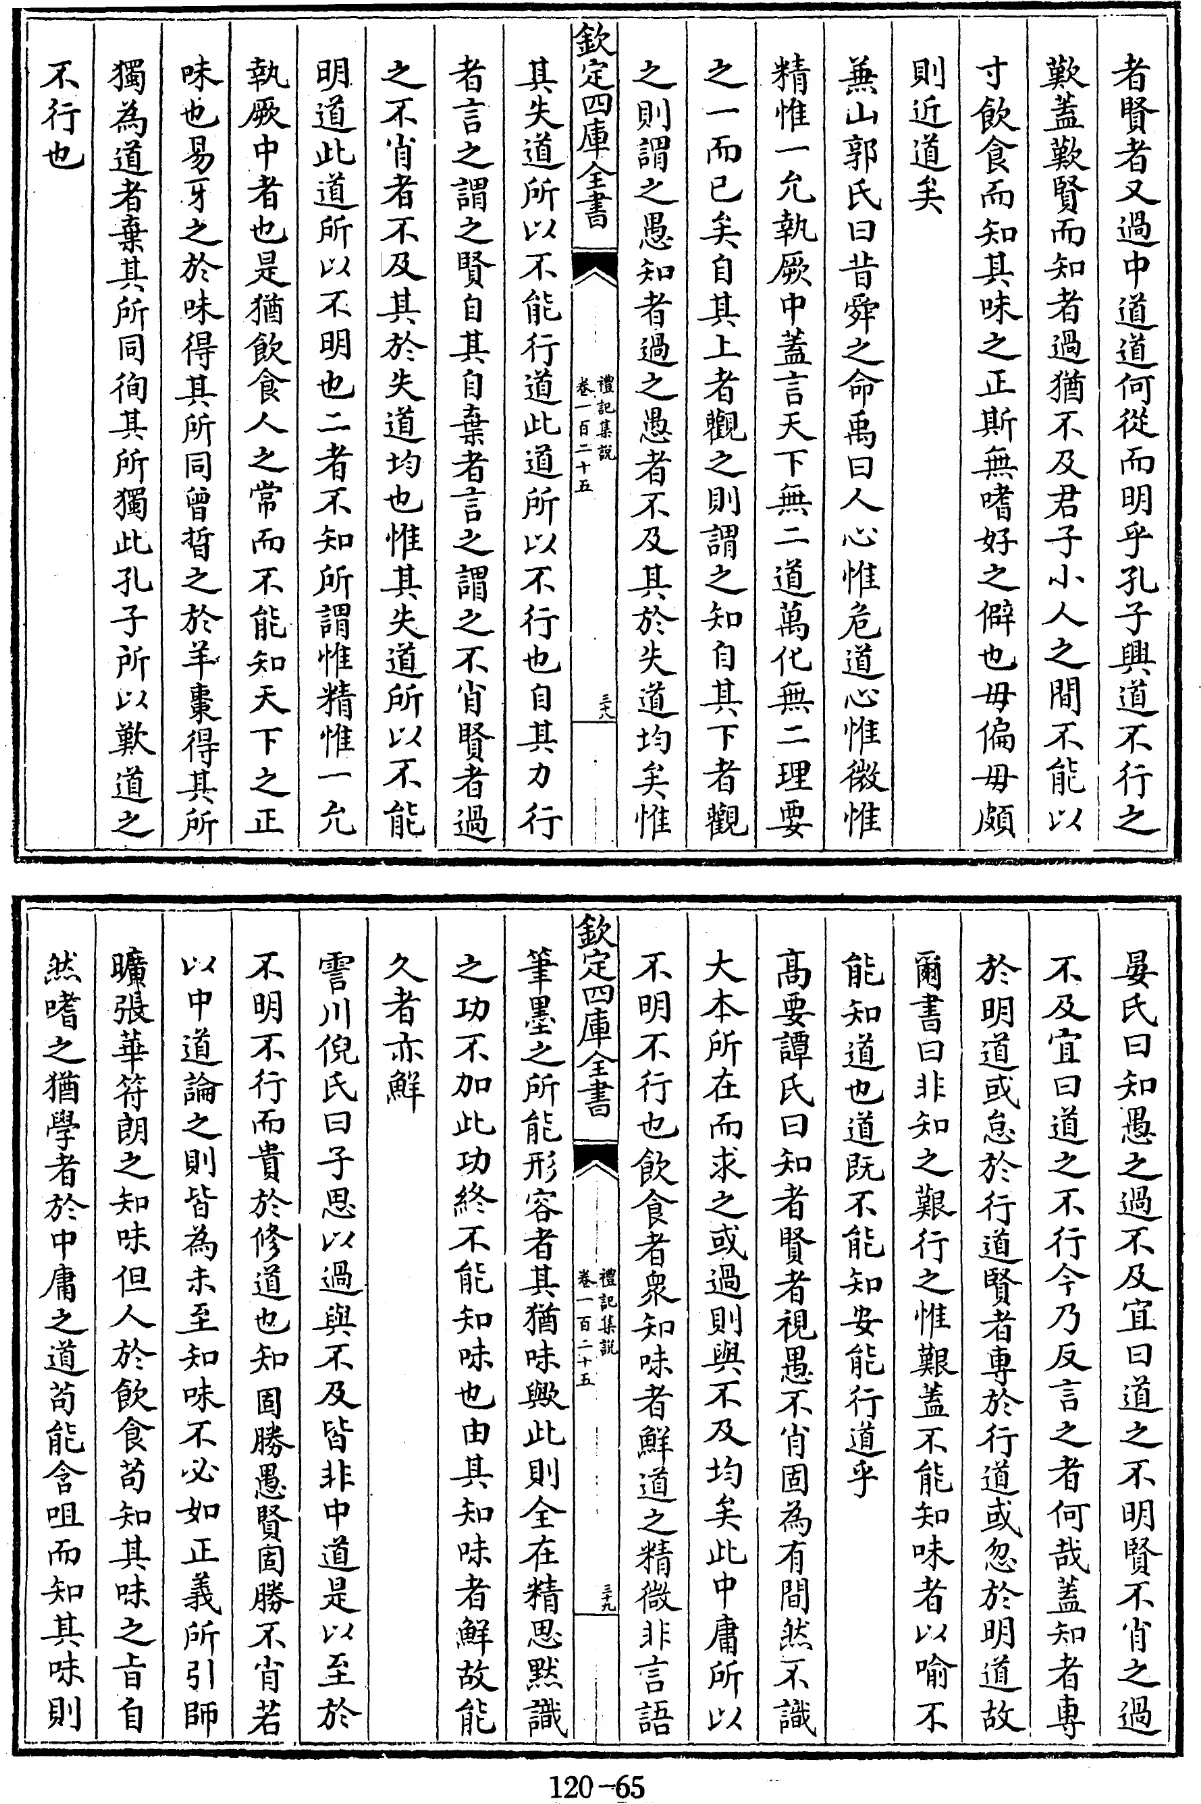 者賢者又過中道道何從而明乎孔子興道不行之
歎蓋歎賢而知者過猶不及君子小人之間不能以
寸飲食而知其味之正斯無嗜好之僻也毋偏毋頗
則近道矣
兼山郭氏曰昔舜之命禹曰人心惟危道心惟微惟
精惟一允執厥中蓋言天下無二道萬化無二理要
之一而已矣自其上者觀之則謂之知自其下者觀
之則謂之愚知者過之愚者不及其於失道均矣惟
欽定四庫全書
禮記集說
卷一百二十五
三十八
其失道所以不能行道此道所以不行也自其力行
者言之謂之賢自其自棄者言之謂之不肖賢者過
之不肖者不及其於失道均也惟其失道所以不能
明道此道所以不明也二者不知所謂惟精惟一允
執厥中者也是猶飲食人之常而不能知天下之正
味也易牙之於味得其所同曾晳之於羊棗得其所
獨為道者棄其所同徇其所獨此孔子所以歎道之
不行也
晏氏曰知愚之過不及宜曰道之不明賢不肖之過
不及宜曰道之不行今乃反言之者何哉蓋知者專
於明道或怠於行道賢者專於行道或忽於明道故
爾書曰非知之艱行之惟艱蓋不能知味者以喻不
能知道也道既不能知安能行道乎
高要譚氏曰知者賢者視愚不肖固為有間然不識
大本所在而求之或過則與不及均矣此中庸所以
不明不行也飲食者衆知味者鮮道之精微非言語
欽定四庫全書
禮記集說
卷一百二十五
三十九
筆墨之所能形容者其猶味歟此則全在精思默識
之功不加此功終不能知味也由其知味者鮮故能
久者亦鮮
霅川倪氏曰子思以過與不及皆非中道是以至於
不明不行而貴於修道也知固勝愚賢固勝不肖若
以中道論之則皆為未至知味不必如正義所引師
曠張華符朗之知味但人於飲食苟知其味之旨自
然嗜之猶學者於中庸之道苟能含咀而知其味則
120-65